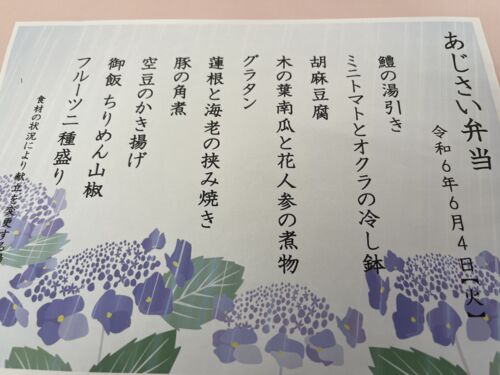 あじさい弁当
令和6年6月4日【火】
鱧の湯引き
ミニトマトとオクラの冷し鉢
胡麻豆腐
木の葉南瓜と花人参の煮物
グラタン
蓮根と海老の挟み焼き
豚の角煮
空豆のかき揚げ
御飯 ちりめん山椒
フルーツ二種盛り
食材の状況により献立を変更する場